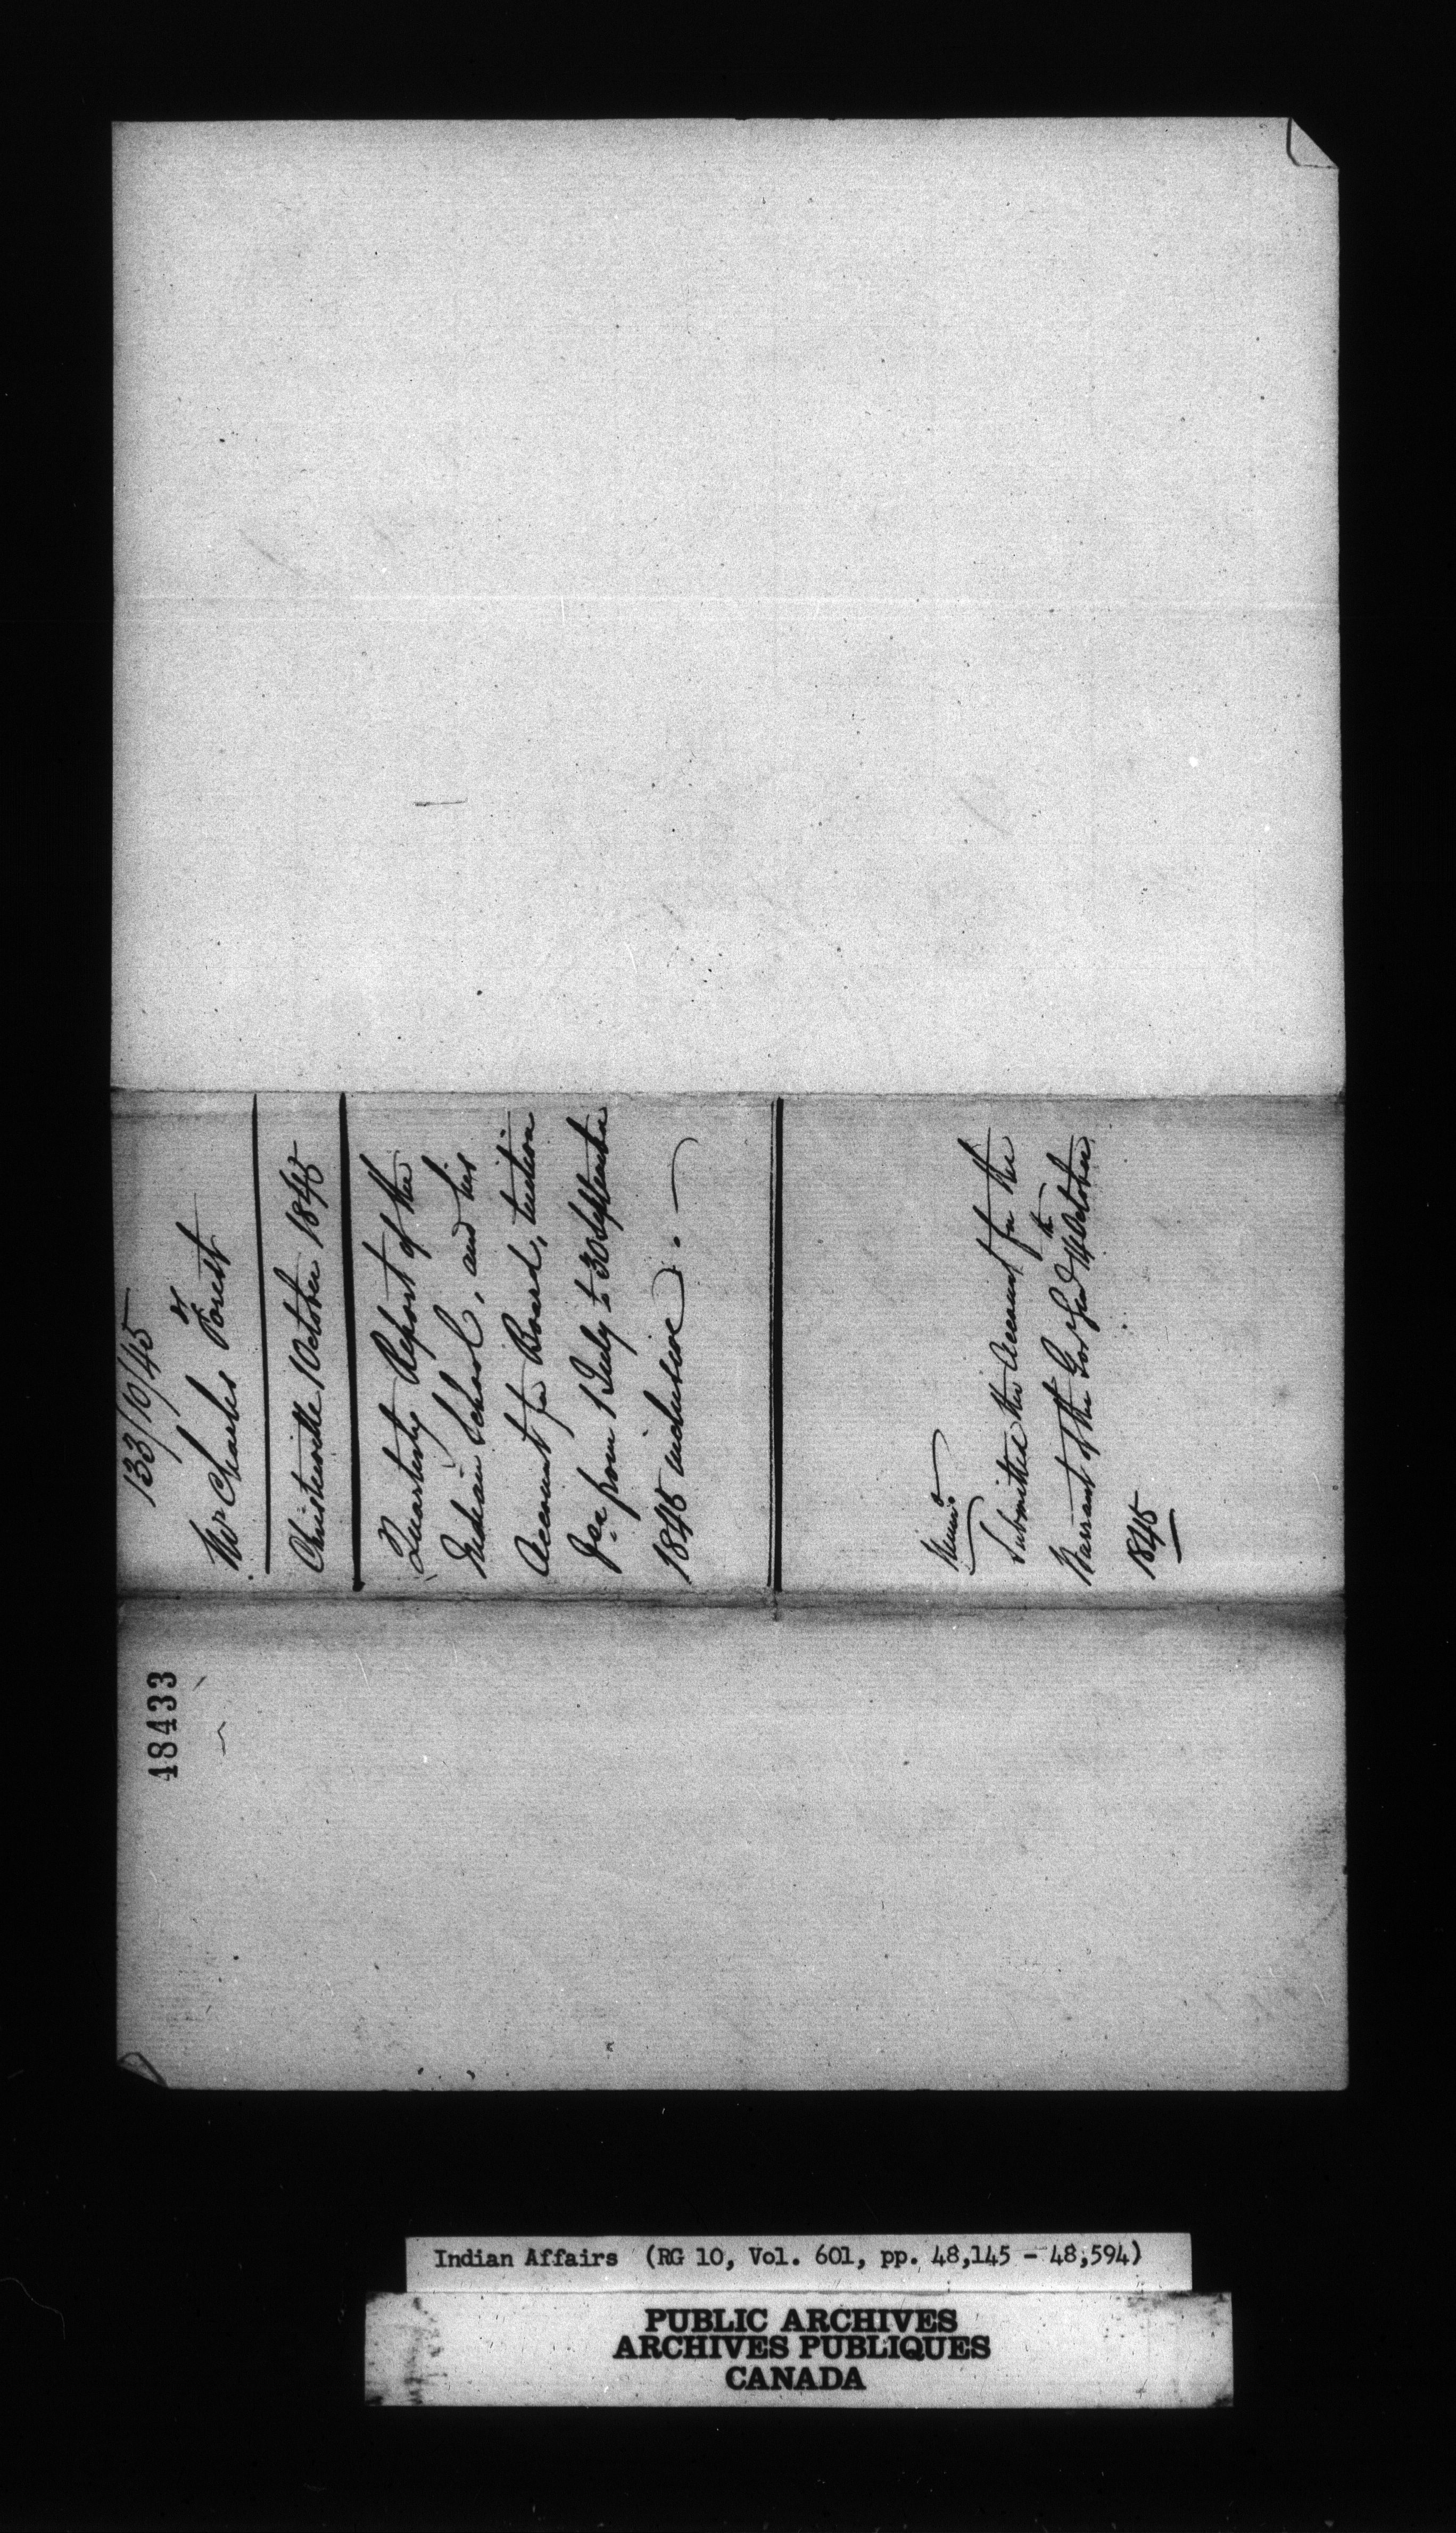 133/10/45
Mr Charles Forest
Christieville 1 October 1845
Quarterly Report of the
Indian School, and his
Account for Board, tuition
&ca from 1 July to 30 September
1845 inclusive. —
Memo
Submitted the Account for the
Warrant of the Gov Genl 14th October
1845
48433
Indian Affairs (RG 10, Vol. 601, pp. 48,145 - 48,594)
PUBLIC ARCHIVES
ARCHIVES PUBLIQUES
CANADA